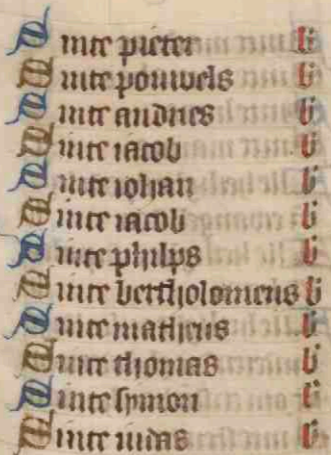 Sinte pieter b
Sinte pouwels b
Sinte andries b
Sinte iacob b
Sinte iohan b
Sinte iacob b
Sinte philps b
Sinte bertholomeus b
Sinte matheus b
Sinte thomas b
Sinte symon b
Sinte iudas b